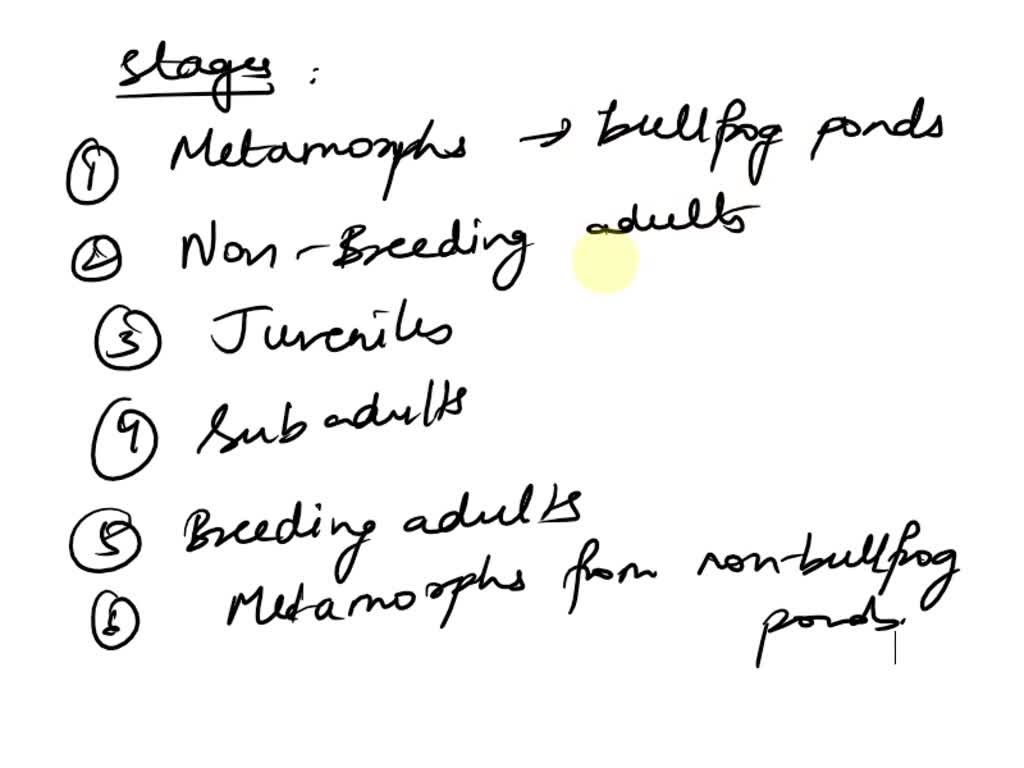 Stages :
① Metamorphs → bullfrog ponds
② Non-Breeding adults
③ Juveniles
④ Sub adults
⑤ Breeding adults
⑥ Metamorphs from non-bullfrog
ponds.